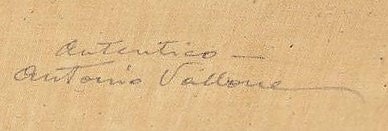 Autentico –
Antonio Vallone